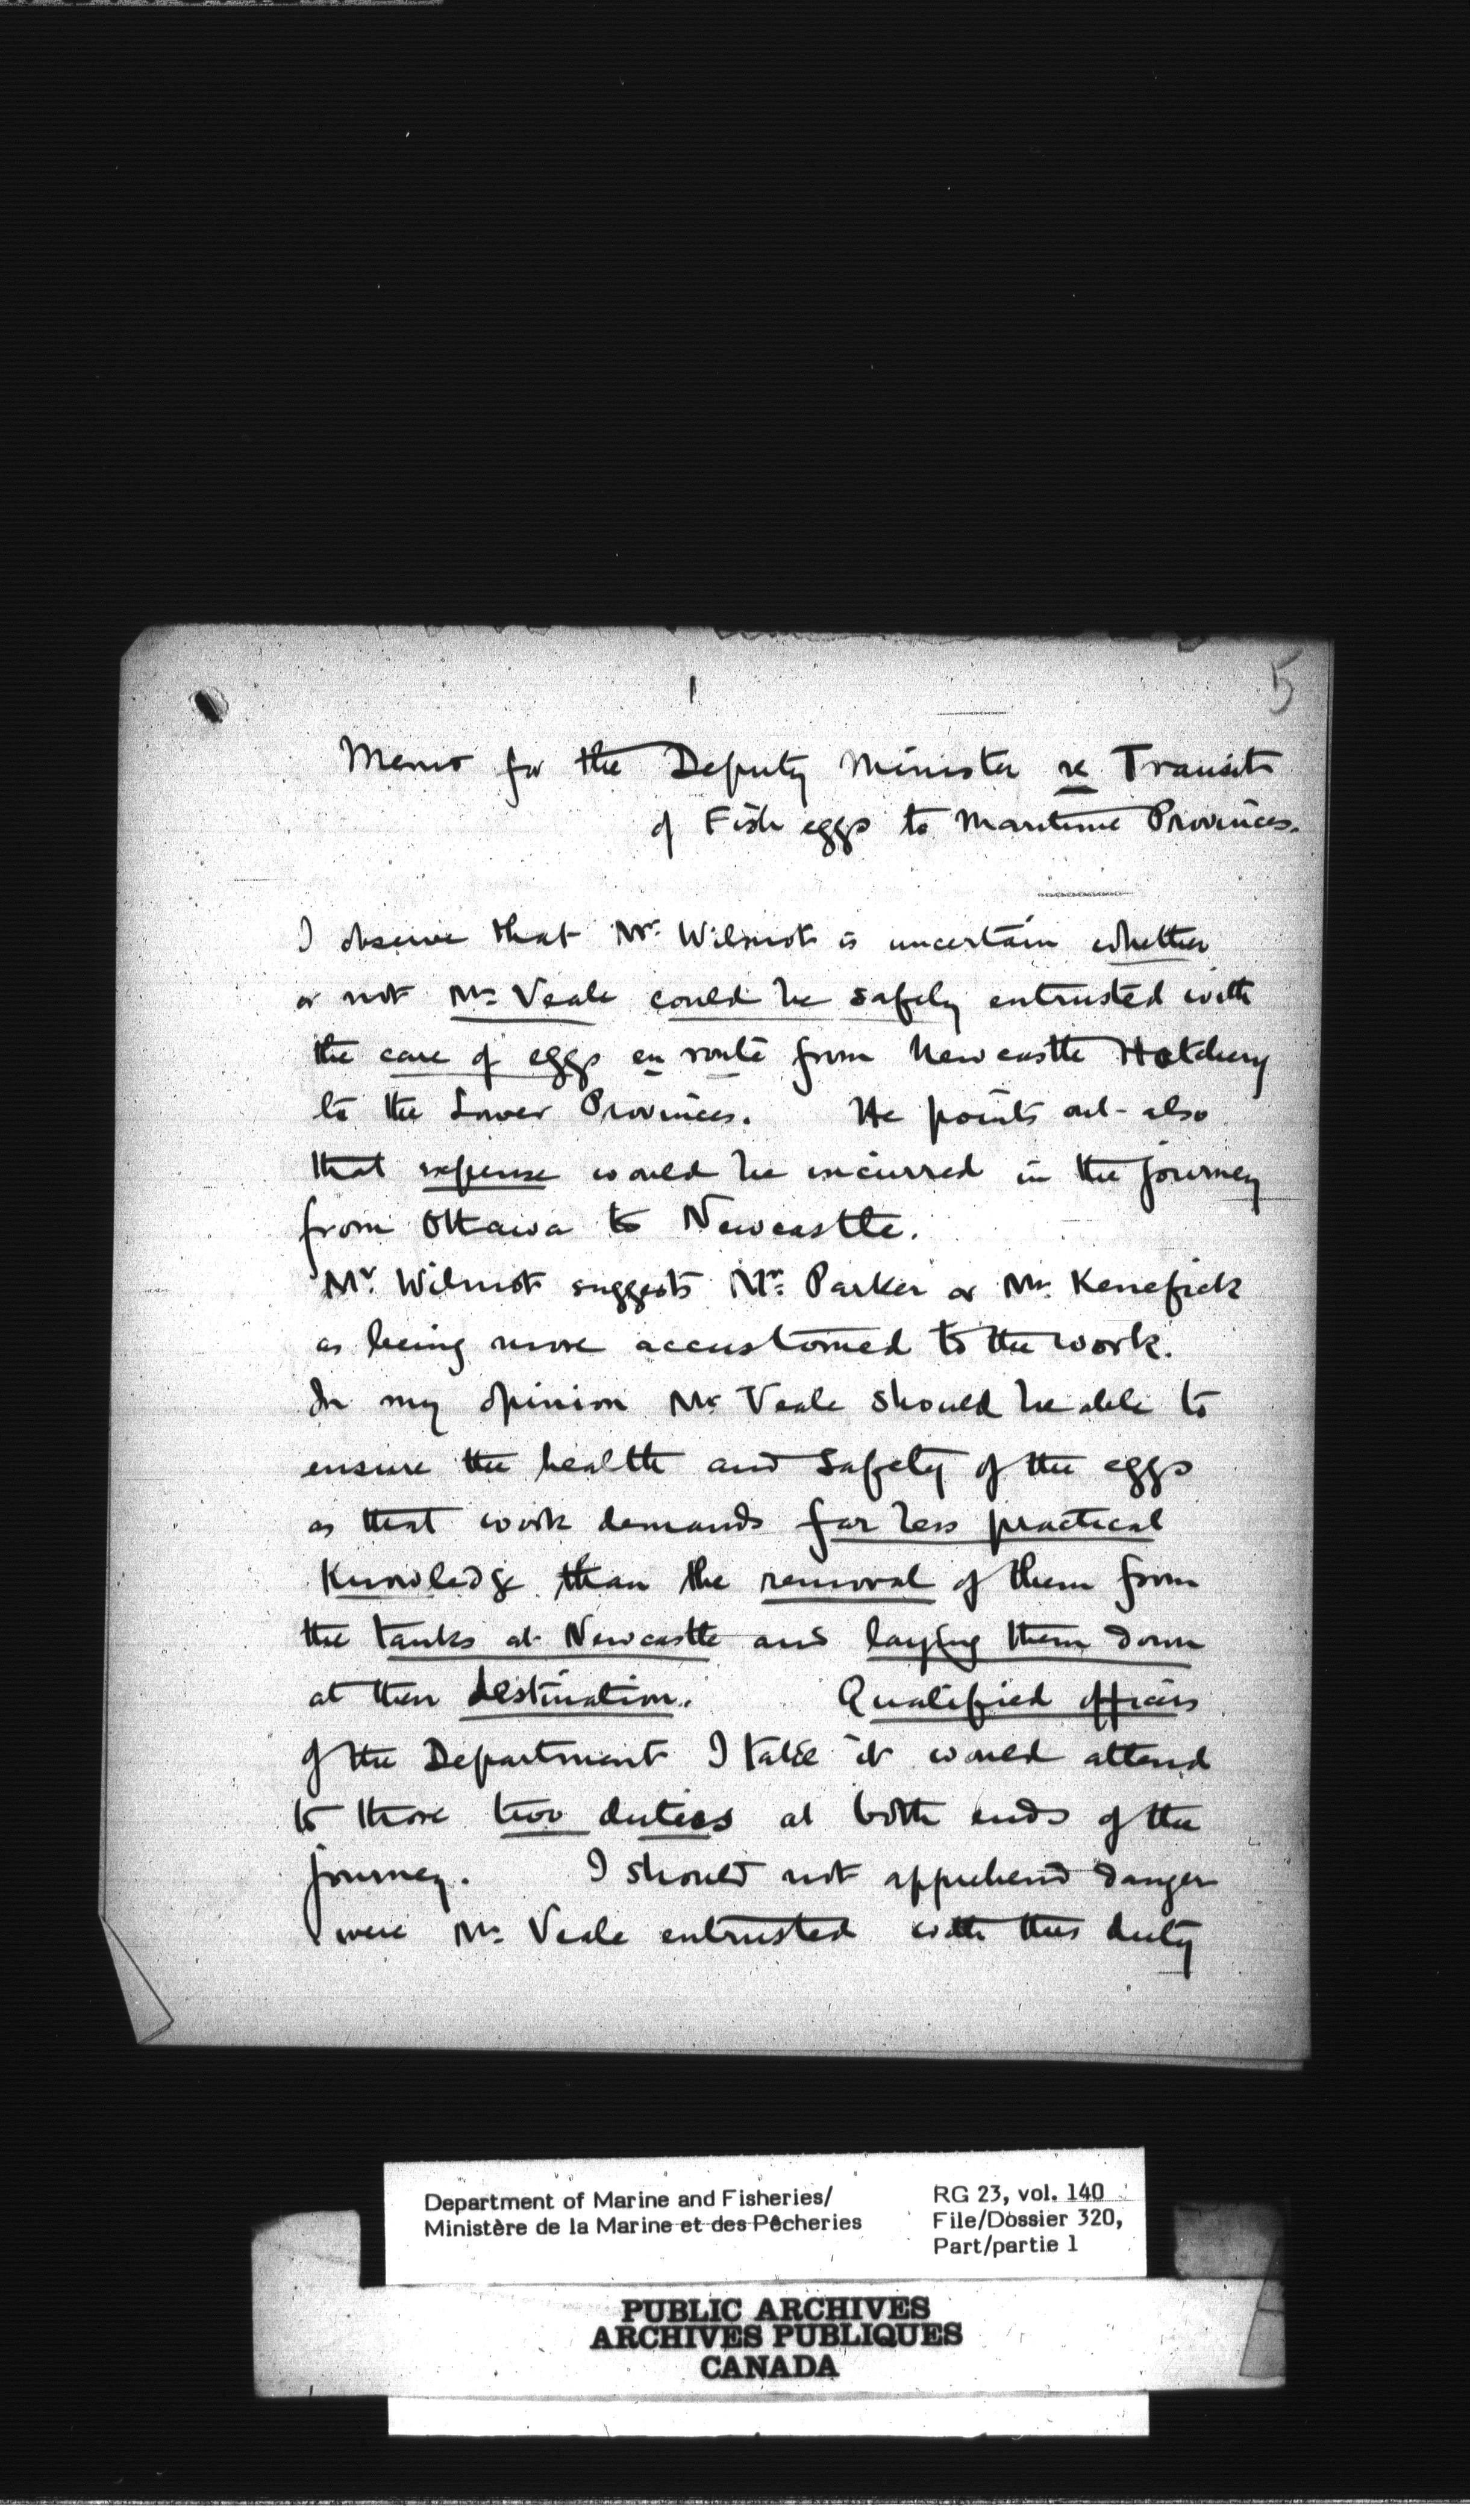 1
5
Memo for the Deputy Minister re Transit
of Fish eggs to Maritime Provinces.
I observe that Mr. Wilmot is uncertain whether
or not Mr. Veale could be safely entrusted with
the care of eggs en route from Newcastle Hatchery
to the Lower Provinces. He points out also
that expense would be incurred in the journey
from Ottawa to Newcastle.
Mr. Wilmot suggests Mr. Parker or Mr. Kenefick
as being more accustomed to the work.
In my opinion Mr. Veale should be able to
ensure the health and safety of the eggs
as that work demands far less practical
Knowledge than the removal of them from
the tanks at Newcastle and laying them down
at their destination. Qualified officers
of the Department I take it would attend
to those two duties at both ends of the
journey. I should not apprehend danger
were Mr. Veale entrusted with this duty
Department of Marine and Fisheries/
Ministère de la Marine et des Pêcheries
RG 23, vol. 140
File/Dossier 320,
Part/partie 1
PUBLIC ARCHIVES
ARCHIVES PUBLIQUES
CANADA